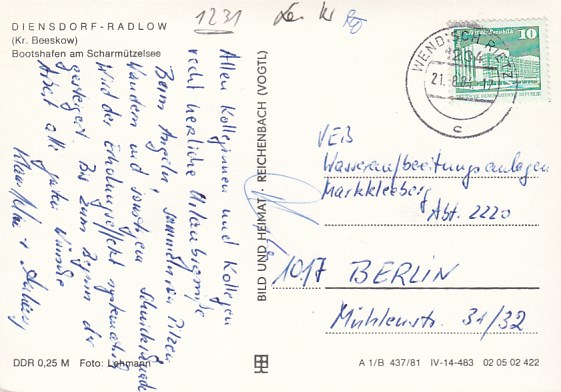 DIENSDORF-RADLOW
(Kr. Beeskow)
Bootshafen am Scharmützelsee
1231
Allen Kolleginnen und Kollegen
recht herzliche Urlaubsgrüße
Beim Angeln, sammeln von Pilzen
Wandern und sonstigem
wird der Erholungseffekt
gesteigert. Bis zum Beginn der
Arbeit alle guten Wünsche
Klaus
BILD UND HEIMAT · REICHENBACH (VOGTL)
WENDISCH RIETZ
1204
21.8.81-17
c
10
DEUTSCHE DEMOKRATISCHE REPUBLIK
VEB
Wasseraufbereitungsanlagen
Markkleeberg
Abt. 2220
1017 BERLIN
Mühlenstr. 31/32
DDR 0,25 M Foto: Lehmann
A 1/B 437/81 IV-14-483 02 05 02 422